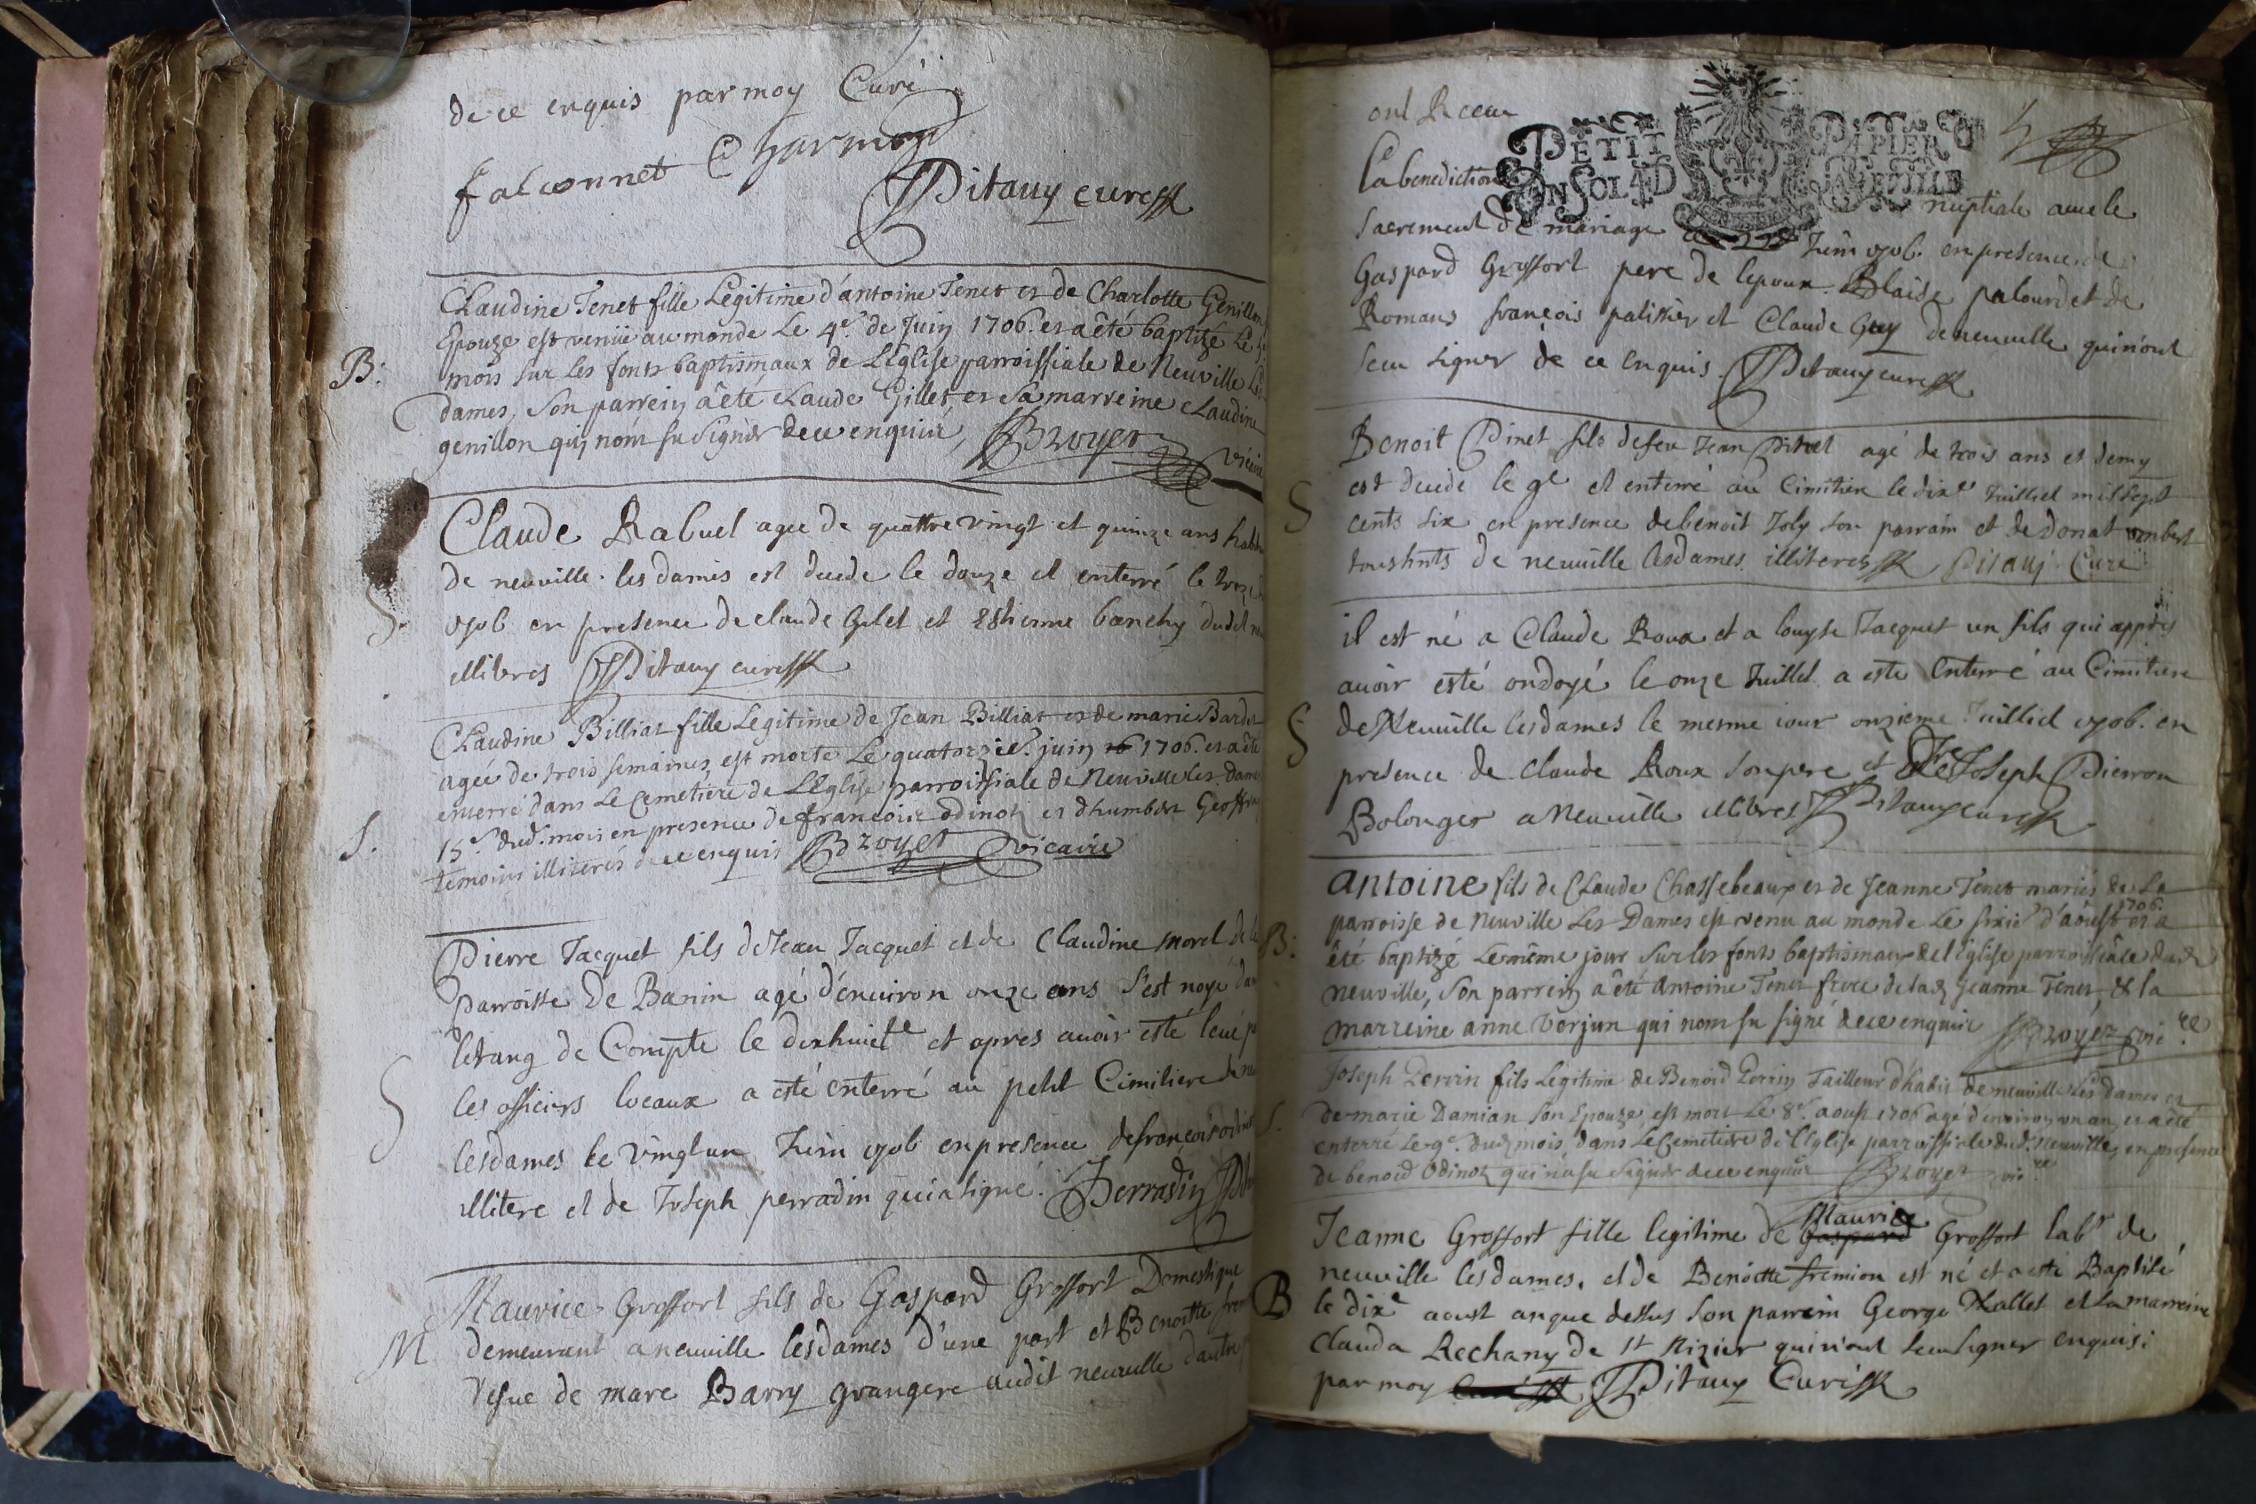 de ce enquis par moy Curé
falconnet Charmon
Pitauy curé
Claudine Tenet fille Legitime d'antoine Tenet et de Charlotte Genillon
Epouze est venüe au monde Le 4e. de Juin 1706. et a été baptizé Le
B:
mois sur Les fonts baptismaux de L'Eglise parroissiale de Neuville Les
dames, Son parrein a été Claude Gillet et Sa marreine Claudine
genillon qui nom su signer de ce enquis, Broyer vicaire
Claude Rabuel agee de quattre vingt et quinze ans
de neuville les dames est decede le douze et enterré le
S.
1706 en presence de claude Gilet et Estienne banchy dudit
illitres Pitauy curé
Claudine Billiat fille Legitime de Jean Billiat et de marie Bardet
agée de trois semaines, est morte Le quatorzie. juin 1706. et a été
enterré dans Le Cemetiere de L'Eglise parroissiale de Neuville les dames
S.
15e. dud. mois en presence de francois odinot et d'humbert Geoffray
temoins illiterés de ce enquis Broyer vicaire
Pierre Jacquet fils de Jean Jacquet et de Claudine morel de la
parroisse de Banin agé d'enuiron onze ans s'est noyé dans
letang de Compte le dixhuite et apres auoir esté leué
S
les officiers locaux a esté enterré au petit Cimitiere de
lesdames le vingtun Juin 1706 en presence de francois odinot
illitere et de Joseph perradin qui a signé. Perradin
Maurice Groffort fils de Gaspard Groffort Domestique
M
demeurant a neuuille lesdames d'une part et Benoitte
vefue de marc Barry grangere audit neuuille d'autre
ont Receu
PETIT PAPIER
UN SOL 4 D LA FEUILLE
La benediction nuptiale auec le
sacrement de mariage le 22e Juin 1706. en presence de
Gaspard Groffort pere de lepoux. Blaise palourdet de
Romans françois palissier et Claude Guy de neuuille qui n'ont
sceu signer de ce enquis. Pitauy curé
Benoit Pinet fils de feu Jean Pinet agé de trois ans et demy
est decede le 9e et enterré au Cimitiere le dixe Juillet mil sept
S
cents six en presence de benoit Joly son parrain et de donat ombert
tous hnts de neuuille lesdames illiteres Pitauy Curé
il est né a Claude Roux et a louyse Jacquet un fils qui apprés
auoir esté ondoyé le onze Juillet a este Enterré au Cimitiere
S
de Neuuille lesdames le mesme iour onzieme Juillet 1706. en
presence de claude Roux son pere et de Joseph Pierron
Bolonger a Neuuille illitres Pitauy curé
Antoine fils de Claude Chassebeaux et de Jeanne Tenet mariés de La
parroisse de Neuville Les Dames est venu au monde Le sixie. d'aoust 1706. et a
B:
été baptizé Le même jour Sur les fonts baptismaux de l'Eglise parroissiale dud.
Neuville, Son parrein a été Antoine Tenet frere de lad. Jeanne Tenet, & la
marreine anne Vorjun qui nom su signé de ce enquis Broyer vicre
Joseph Perrin fils Legitime de Benoid Perrin Tailleur d'habit de neuville Les dames et
de marie Damian Son Epouze, est mort Le 8e. aoust 1706 age d'environ un an, et a été
S.
enterré Le 9e. dud. mois, dans Le Cemetiere de l'Eglise parroissiale dud. Neuville, en presence
de benoid Odinot, qui n'a su signer de ce enquis Broyer vicre
Maurice
Jeanne Groffort fille legitime de Gaspard Groffort labr de
neuuille lesdames, et de Benoitte fremion est né et a esté Baptisé
B
le dixe aoust an que dessus son parrein George Nallet et la marreine
Clauda Rechany de St Nizier qui n'ont sceu signer enquis:
par moy Curé Pitauy Curé